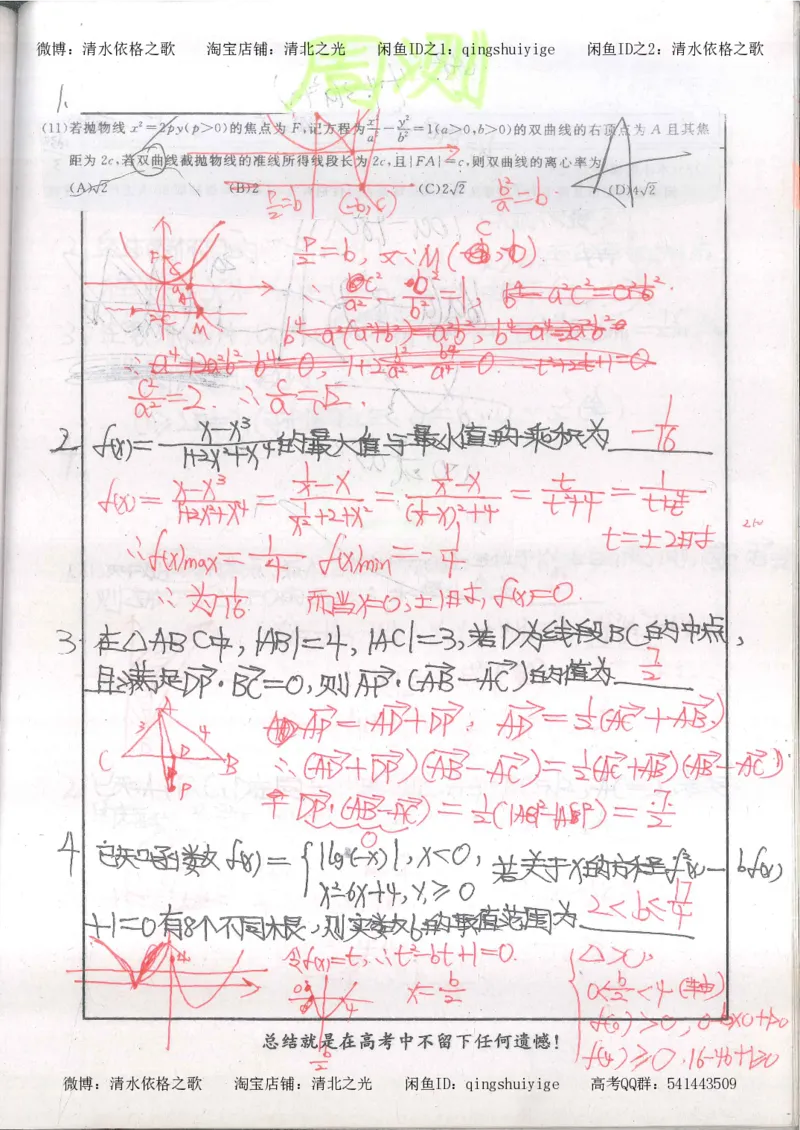 微博：清水依格之歌 淘宝店铺：清北之光 闲鱼ID之1：qingshuiyige 闲鱼ID之2：清水依格之歌
周测
1.
(11)若抛物线 x²=2py(p>0)的焦点为 F,记方程为 x²/a²-y²/b²=1(a>0,b>0)的双曲线的右顶点为 A 且其焦
距为 2c,若双曲线截抛物线的准线所得线段长为 2c,且|FA|=c,则双曲线的离心率为
(A)√2 (B)2 (C)2√2 (D)4√2
p/2=b (-b,c) b²/a=b
p/2=b, ∴M(c,-b)
∴c²/a²-b²/b²=1,
c²/a²=2 ∴c/a=√2.
2. f(x)=(x-x³)/(1+2x²+x⁴)的最大值与最小值的乘积为 -1/16
f(x)=(x-x³)/(1+2x²+x⁴)=(1/x-x)/(1/x²+2+x²)=(1/x-x)/((1/x-x)²+4)=t/(t²+4)=1/(t+4/t)
t=±2时
∴f(x)max=1/4 f(x)min=-1/4
∴为-1/16. 而当x=0,±1时,f(x)=0.
3. 在△ABC中,|AB|=4,|AC|=3,若D为线段BC的中点,
且满足DP·BC=0,则AP·(AB-AC)的值为 7/2
AP=AD+DP, AD=1/2(AC+AB)
∴(AD+DP)(AB-AC)=1/2(AC+AB)(AB-AC)
+DP·(AB-AC)=1/2(|AB|²-|AB|²)=7/2
0
4 已知函数f(x)={|lg(-x)|,x<0,
x²-6x+4,x≥0
若关于x的方程f²(x)-bf(x)
+1=0有8个不同根,则实数b的取值范围为 2<b≤17/4
令f(x)=t,∴t²-bt+1=0.
x=b/2
{△>0,
0<b/2<4(对称)
f(0)>0, 0-b×0+1>0
f(4)≥0.16-4b+1≥0
总结就是在高考中不留下任何遗憾！
微博：清水依格之歌 淘宝店铺：清北之光 闲鱼ID：qingshuiyige 高考QQ群：541443509